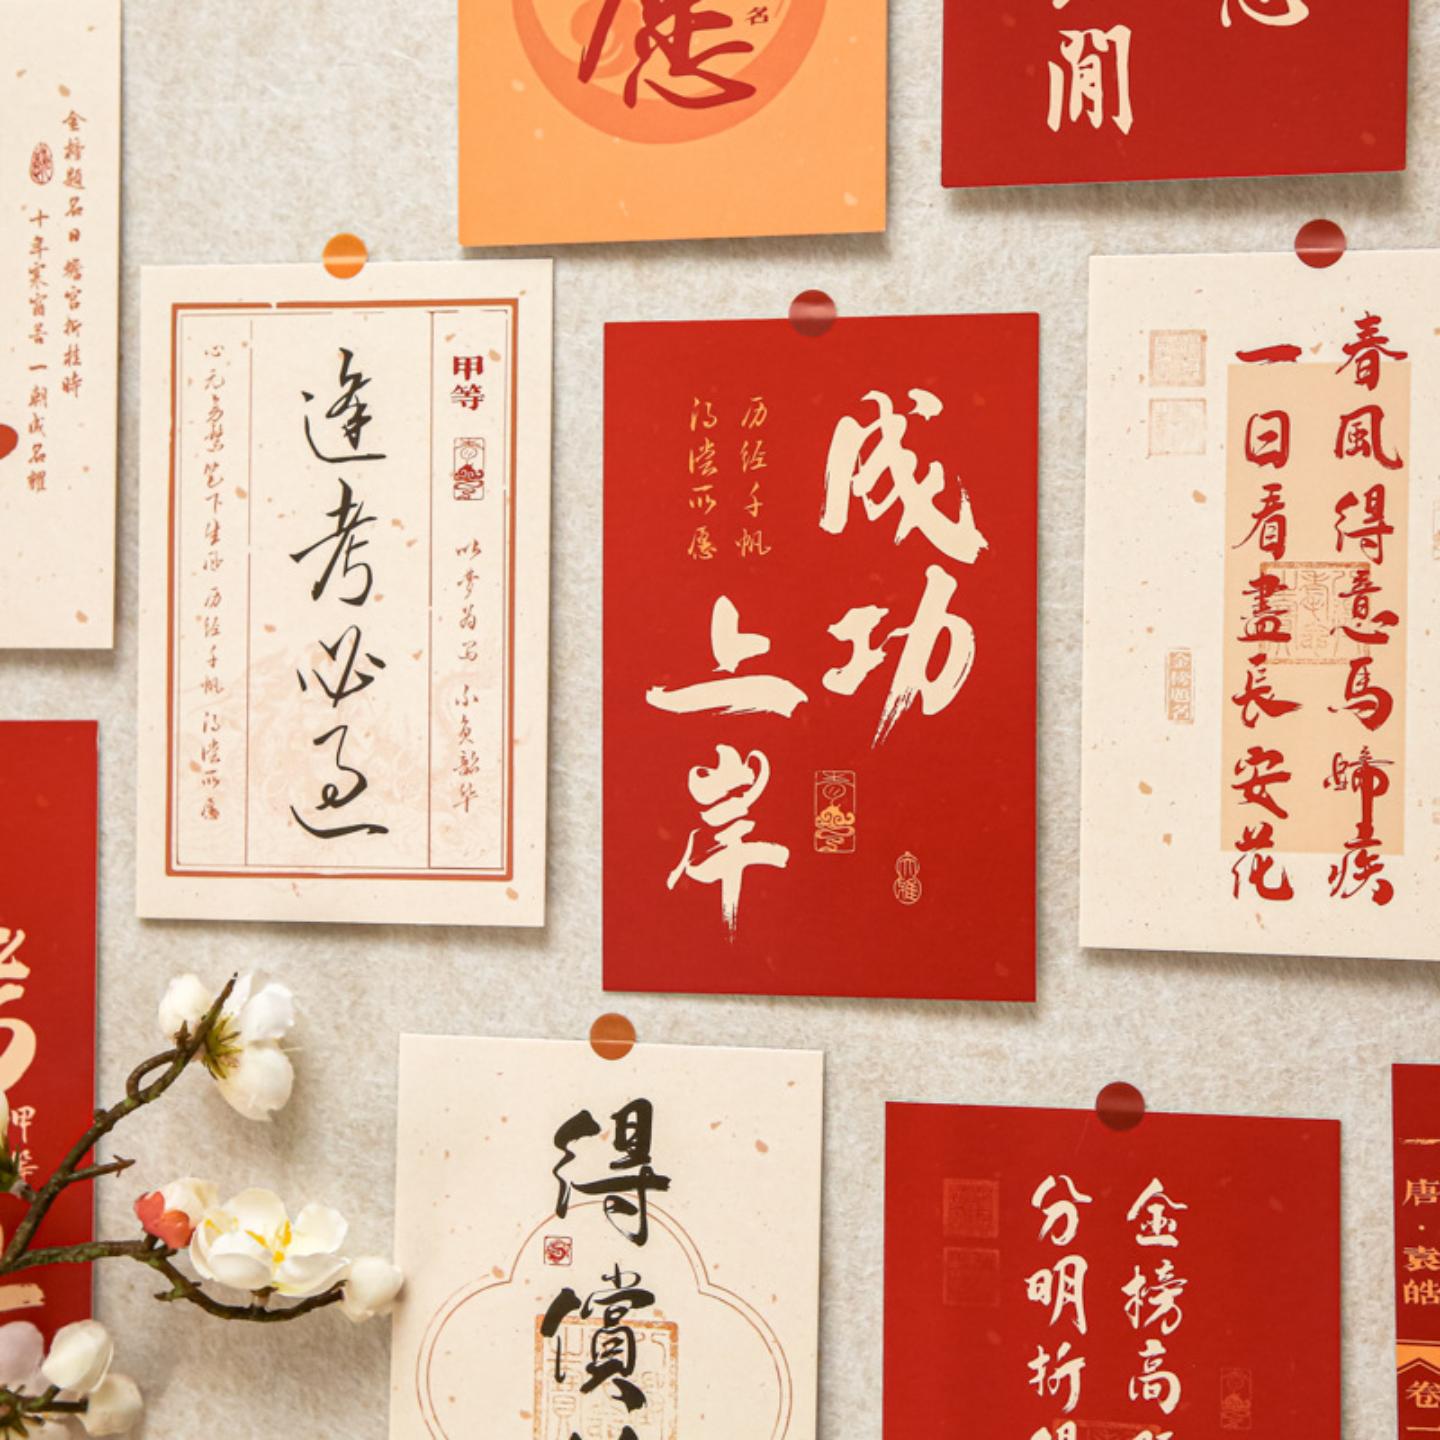 應
名
閒
金榜題名日 蟾宮折桂時
十年寒窗苦 一朝成名耀
甲等
以梦为马 不负韶华
逢考必过
心无旁骛 笔下生风 历经千帆 得偿所愿
成功
上岸
历经千帆
得偿所愿
大雅
春風得意馬蹄疾
一日看盡長安花
金榜題名
甲等
得償
金榜高
分明折
唐·袁皓
卷一